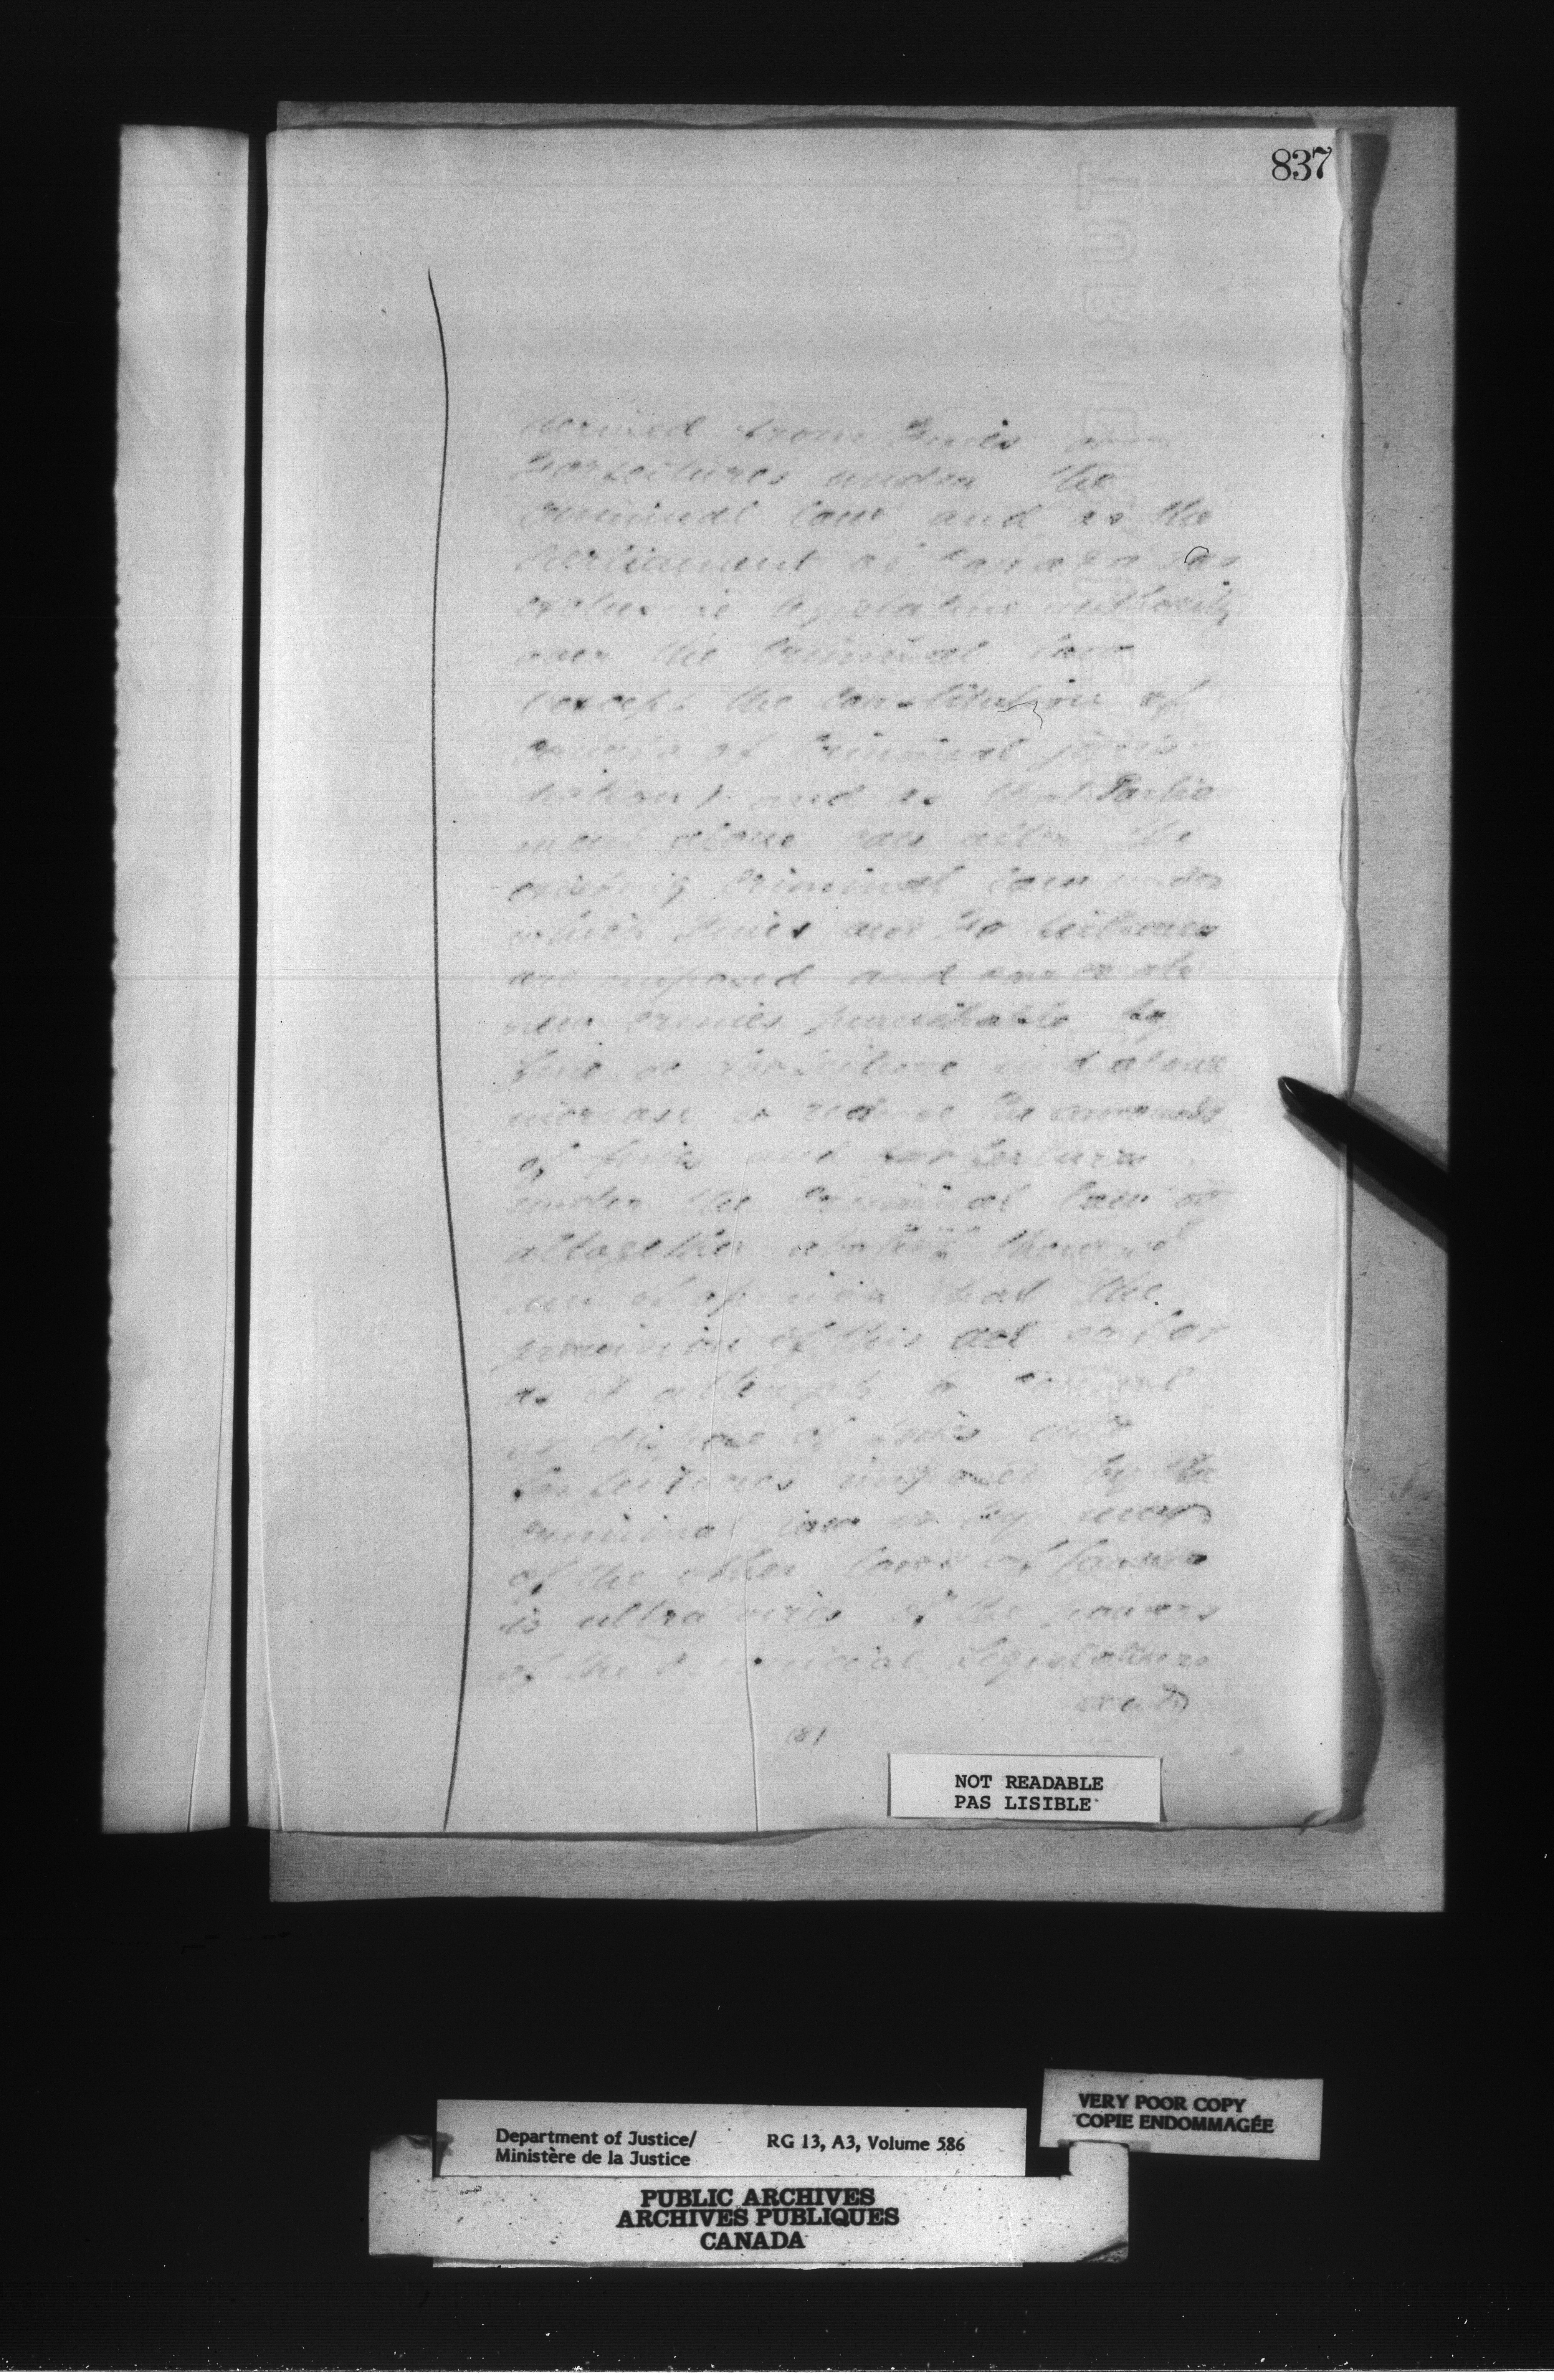 837
derived from fines
Forfeitures under the
Criminal law and as the
Parliament of Canada has
exclusive legislative authority
over the Criminal law
(except the Constitution of
Courts of Criminal juris
diction) and as that Parlia
ment alone can alter the
existing Criminal law under
which fines and forfeitures
are imposed and can create
new crimes punishable by
fine or forfeiture and alone
increase or reduce the amounts
of fines and forfeitures
under the Criminal law or
altogether abolish them
of opinion that the
provision of this act so far
as it attempts to
or dispose of fines and
forfeitures imposed by the
Criminal law or by
of the other laws of Canada
is ultra vires of the powers
of the Provincial Legislature
(8)
NOT READABLE
PAS LISIBLE
VERY POOR COPY
COPIE ENDOMMAGÉE
Department of Justice/ RG 13, A3, Volume 586
Ministère de la Justice
PUBLIC ARCHIVES
ARCHIVES PUBLIQUES
CANADA